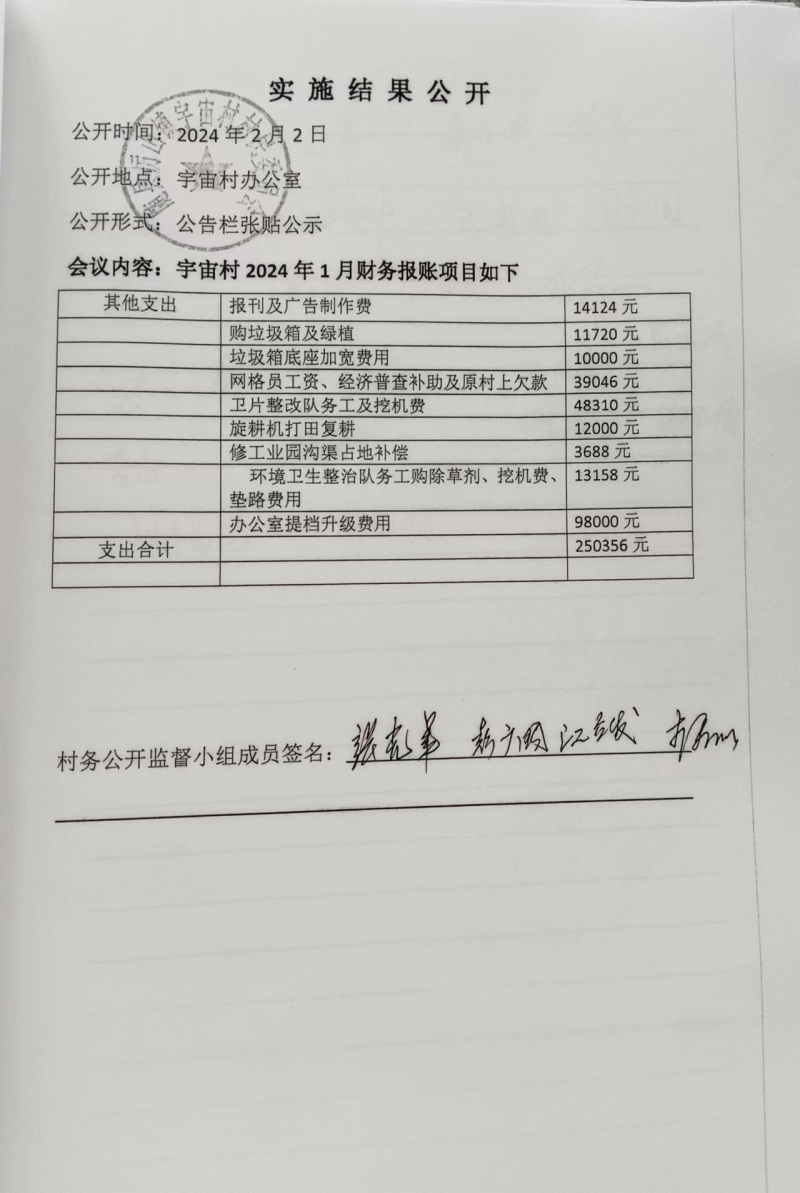 实施结果公开
公开时间：2024年2月2日
公开地点：宇宙村办公室
公开形式：公告栏张贴公示
会议内容：宇宙村2024年1月财务报账项目如下
其他支出 报刊及广告制作费 14124元
购垃圾箱及绿植 11720元
垃圾箱底座加宽费用 10000元
网格员工资、经济普查补助及原村上欠款 39046元
卫片整改队务工及挖机费 48310元
旋耕机打田复耕 12000元
修工业园沟渠占地补偿 3688元
环境卫生整治队务工购除草剂、挖机费、 13158元
垫路费用
办公室提档升级费用 98000元
支出合计 250356元
村务公开监督小组成员签名：